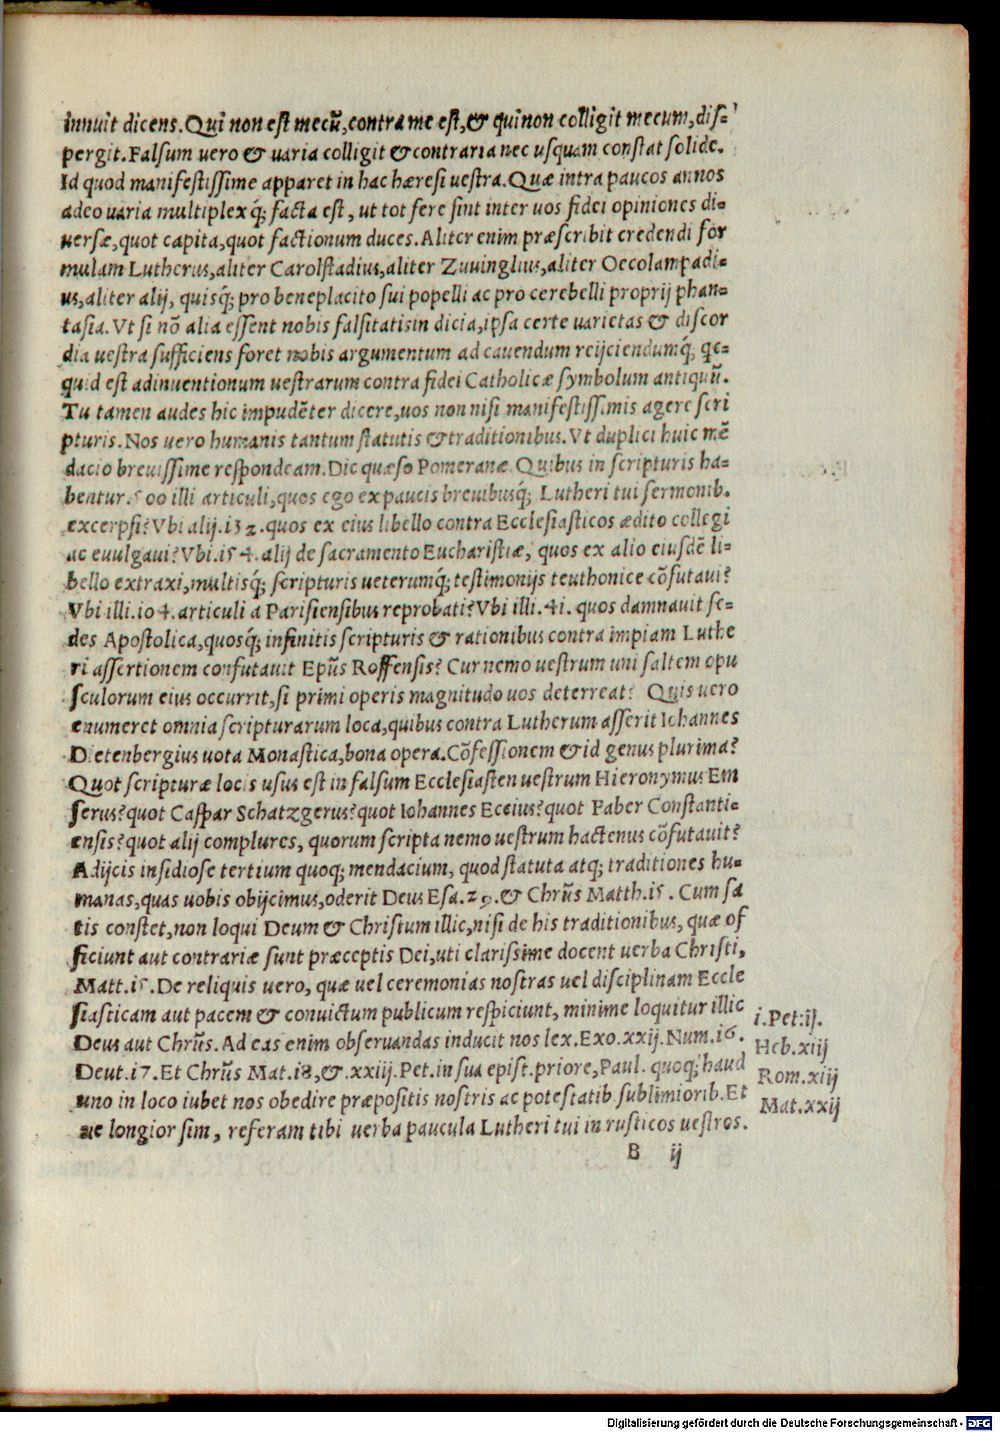 innuit dicens. Qui non est mecũ, contra me est, & qui non colligit mecum, dis=
pergit. Falsum uero & uaria colligit & contraria nec usquam constat solide.
Id quod manifestissime apparet in hac hæresi uestra. Quæ intra paucos annos
adeo uaria multiplexq́; facta est, ut tot fere sint inter uos fidei opiniones di=
uersæ, quot capita, quot factionum duces. Aliter enim præscribit credendi for
mulam Lutherus, aliter Carolstadius, aliter Zuuinglius, aliter Oecolampadi=
us, aliter alij, quisq́; pro beneplacito sui popelli ac pro cerebelli proprij phan=
tasia. Vt si nõ alia essent nobis falsitatis in dicia, ipsa certe uarietas & discor
dia uestra sufficiens foret nobis argumentum ad cauendum reijciendumq́; qc=
quid est adinuentionum uestrarum contra fidei Catholicæ symbolum antiquũ.
Tu tamen audes hic impudẽter dicere, uos non nisi manifestissimis agere scri
pturis. Nos uero humanis tantum statutis & traditionibus. Vt duplici huic mẽ
dacio breuissime respondeam. Dic quæso Pomerane. Quibus in scripturis ha=
bentur. 500 illi articuli, quos ego ex paucis breuibusq́; Lutheri tui sermonib.
excerpsi? Vbi alij. 132. quos ex eius libello contra Ecclesiasticos ædito collegi
ac euulgaui? Vbi. 154. alij de sacramento Eucharistiæ, quos ex alio eiusdẽ li=
bello extraxi, multisq́; scripturis ueterumq́; testimonijs teuthonice cõfutaui?
Vbi illi. 104. articuli a Parisiensibus reprobati? Vbi illi. 41. quos damnauit se=
des Apostolica, quosq́; infinitis scripturis & rationibus contra impiam Luthe
ri assertionem confutauit Epũs Roffensis? Cur nemo uestrum uni saltem opu
sculorum eius occurrit, si primi operis magnitudo uos deterreat? Quis uero
enumeret omnia scripturarum loca, quibus contra Lutherum asserit Iohannes
Dietenbergius uota Monastica, bona opera. Cõfessionem & id genus plurima?
Quot scripturæ locis usus est in falsum Ecclesiasten uestrum Hieronymus Em
serus? quot Caspar Schatzgerus? quot Iohannes Eccius? quot Faber Constanti=
ensis? quot alij complures, quorum scripta nemo uestrum hactenus cõfutauit?
Adijcis insidiose tertium quoq; mendacium, quod statuta atq; traditiones hu=
manas, quas uobis obijcimus, oderit Deus Esa. 29. & Chrũs Matth. 15. Cum sa
tis constet, non loqui Deum & Christum illic, nisi de his traditionibus, quæ of
ficiunt aut contrariæ sunt præceptis Dei, uti clarissime docent uerba Christi,
Matt. 15. De reliquis uero, quæ uel ceremonias nostras uel disciplinam Eccle
siasticam aut pacem & conuictum publicum respiciunt, minime loquitur illic
Deus aut Chrũs. Ad eas enim obseruandas inducit nos lex. Exo. xxij. Num. 16.
Deut. 17. Et Chrũs Mat. 18, &. xxiij. Pet. in sua epist. priore, Paul. quoq; haud
uno in loco iubet nos obedire præpositis nostris ac potestatib. sublimiorib. Et
ne longior sim, referam tibi uerba paucula Lutheri tui in rusticos uestros.
i. Pet: ij.
Heb. xiij
Rom. xiij
Mat. xxij
B ij
Digitalisierung gefördert durch die Deutsche Forschungsgemeinschaft - DFG